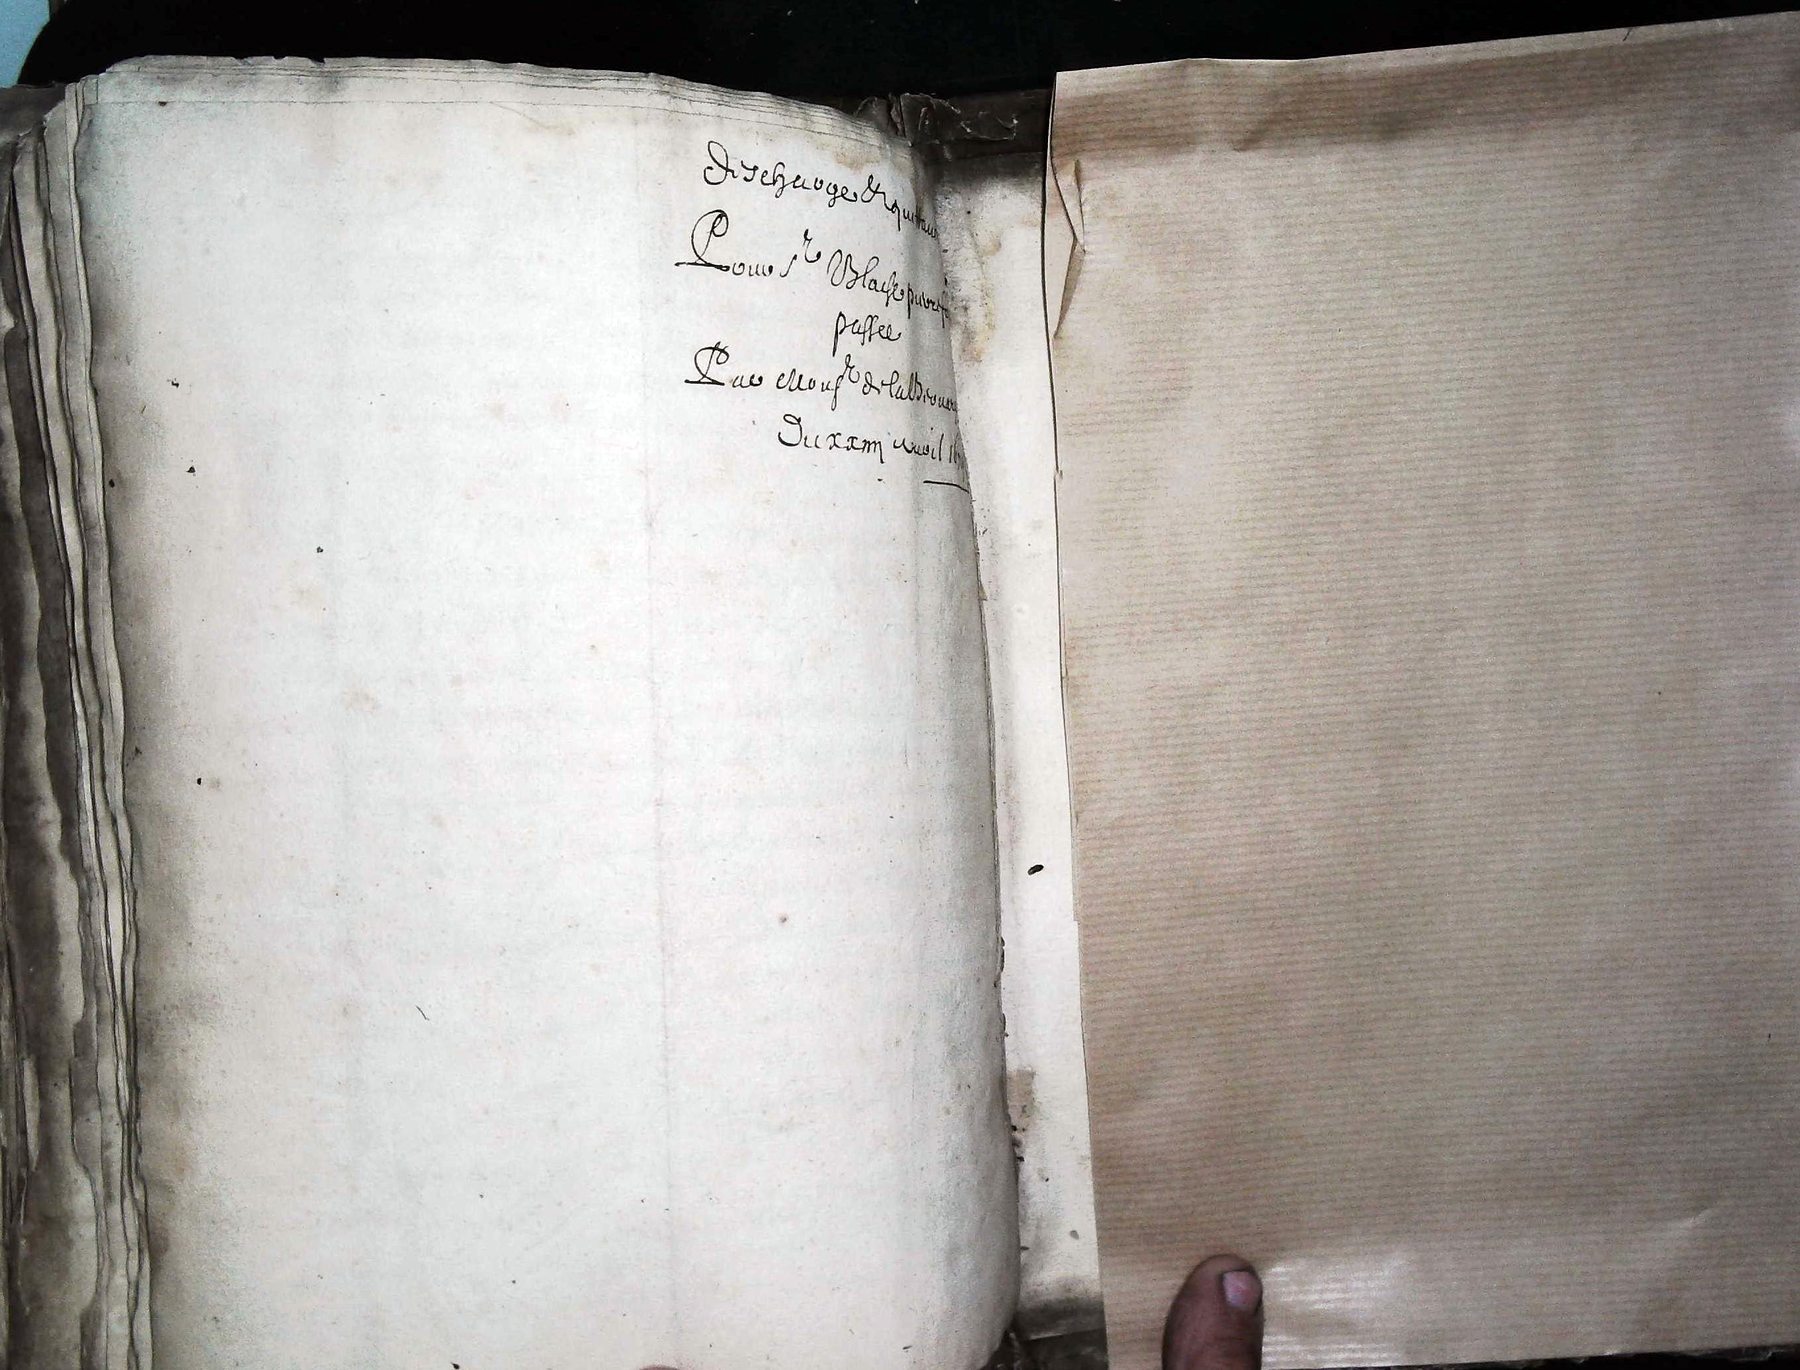 dischange & quittan
Pour Sr Blaise
passee
Par Mons.r de la
Du xxiii avril 16